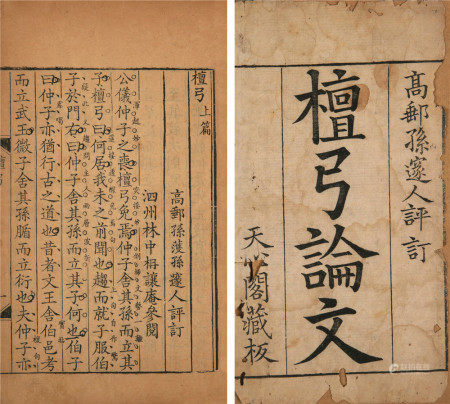 高郵孫邃人評訂
檀弓論文
天心閣藏板
檀弓上篇
高郵孫濩孫邃人評訂
泗州林中桐讓庵參閱
公儀仲子之喪檀弓免焉仲子舍其孫而立其
子檀弓曰何居我未之前聞也趨而就子服伯
子於門右曰仲子舍其孫而立其子何也伯子
曰仲子亦猶行古之道也昔者文王舍伯邑考
而立武王微子舍其孫腯而立衍也夫仲子亦